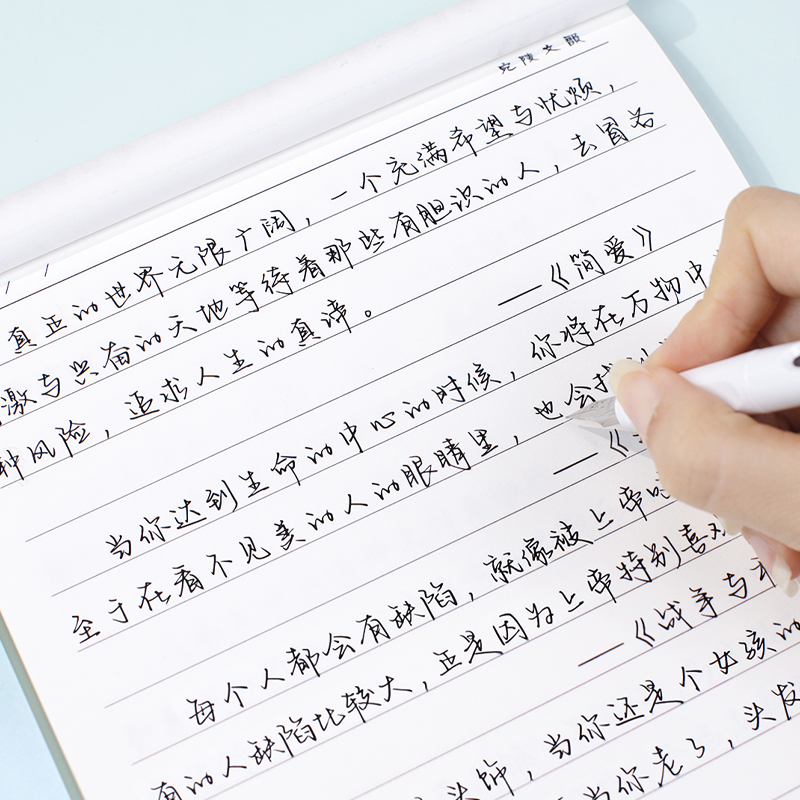 陵文
真正的世界无限广阔，一个充满希望与忧烦，
激与兴奋的天地等待着那些有胆识的人，去冒各
种风险，追求人生的真谛。
——《简爱》
当你达到生命的中心的时候，你将在万物中
至于在看不见美的人的眼睛里，也会找到
——《
每个人都会有缺陷，就像被上帝咬
有的人缺陷比较大，正是因为上帝特别喜
——《战争与和
头饰，当你还是个女孩的
当你老了，头发